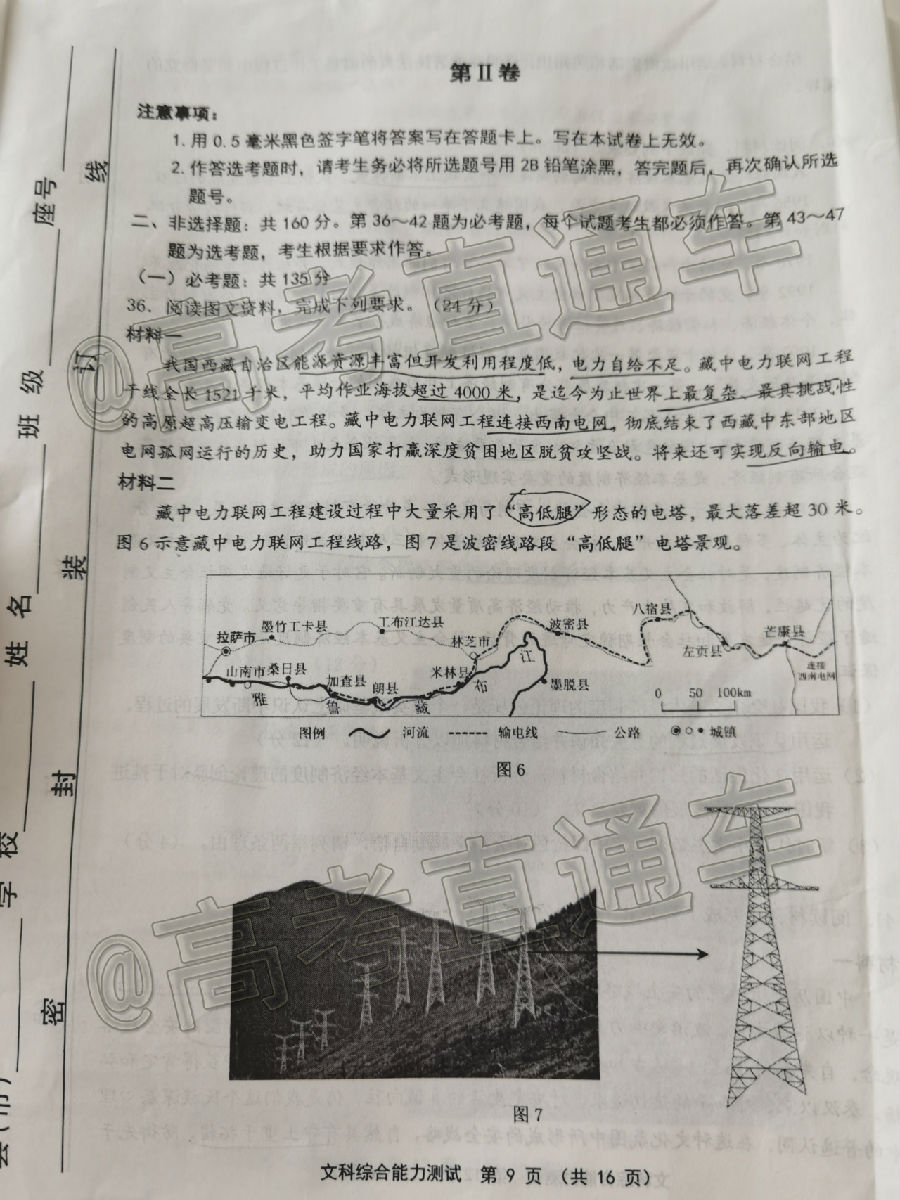 第Ⅱ卷
注意事项：
1. 用 0.5 毫米黑色签字笔将答案写在答题卡上。写在本试卷上无效。
2. 作答选考题时，请考生务必将所选题号用 2B 铅笔涂黑，答完题后，再次确认所选
题号。
二、非选择题：共 160 分。第 36～42 题为必考题，每个试题考生都必须作答。第 43～47
题为选考题，考生根据要求作答。
（一）必考题：共 135 分
36. 阅读图文资料，完成下列要求。（24 分）
材料一
我国西藏自治区能源资源丰富但开发利用程度低，电力自给不足。藏中电力联网工程
干线全长 1521 千米，平均作业海拔超过 4000 米，是迄今为止世界上最复杂、最具挑战性
的高原超高压输变电工程。藏中电力联网工程连接西南电网，彻底结束了西藏中东部地区
电网孤网运行的历史，助力国家打赢深度贫困地区脱贫攻坚战。将来还可实现反向输电。
材料二
藏中电力联网工程建设过程中大量采用了“高低腿”形态的电塔，最大落差超 30 米。
图 6 示意藏中电力联网工程线路，图 7 是波密线路段“高低腿”电塔景观。
拉萨市
墨竹工卡县
工布江达县
林芝市
波密县
八宿县
左贡县
芒康县
连接
西南电网
山南市
桑日县
加查县
朗县
米林县
墨脱县
雅
鲁
藏
布
江
0 50 100km
图例 河流 输电线 公路 城镇
图 6
图 7
文科综合能力测试 第 9 页 （共 16 页）
座号
班级
姓名
学校
县(市)
密
封
装
订
线
@高考直通车
@高考直通车